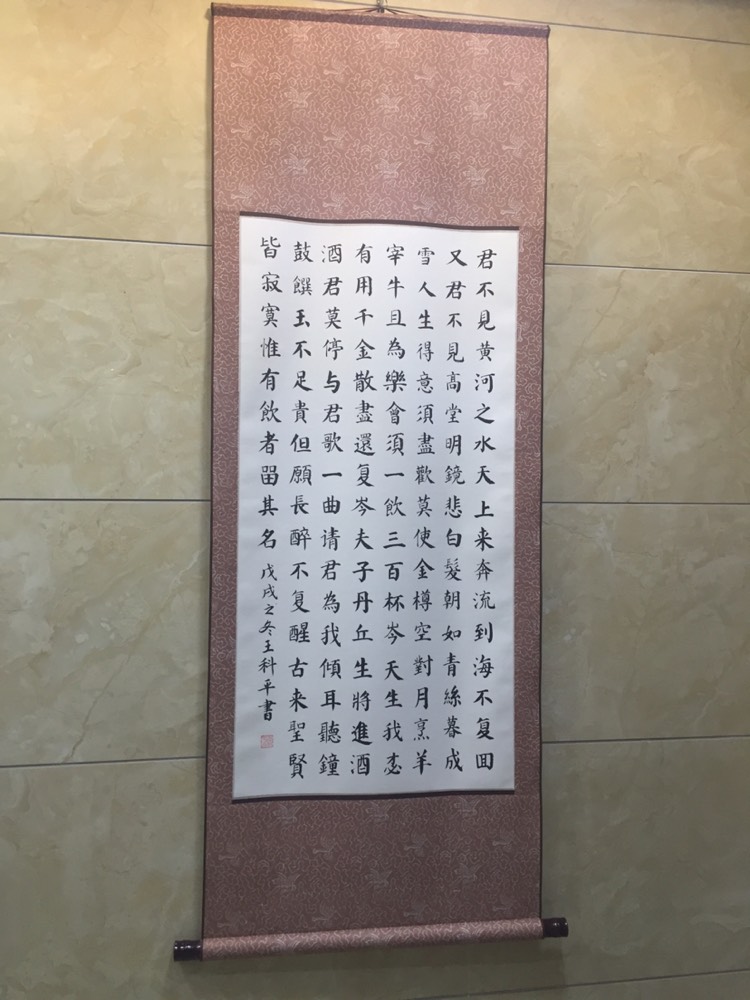 君不見黄河之水天上来奔流到海不复囬
又君不見高堂明鏡悲白髮朝如青絲暮成
雪人生得意須盡歡莫使金樽空對月烹羊
宰牛且為樂會須一飲三百杯岑天生我
有用千金散盡還复岑夫子丹丘生將進酒
酒君莫停与君歌一曲请君為我傾耳聽鐘
鼓饌玉不足貴但願長醉不复醒古来聖賢
皆寂寞惟有飲者畱其名 戊戌之冬王科平書